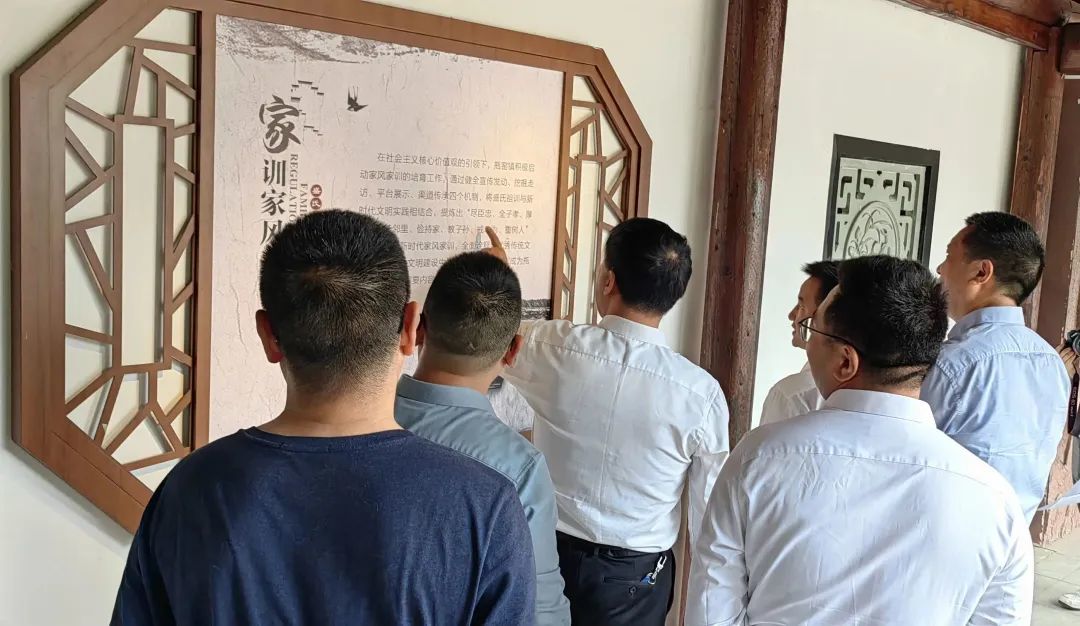 家训家风
FAMILY
REGULATION
在社会主义核心价值观的引领下，高密镇积极启
动家风家训的培育工作，通过健全宣传发动、挖掘走
访、平台展示、渠道传承四个机制，将盛氏祖训与新
时代文明实践相结合，提炼出“尽臣忠、全子孝、厚
邻里、俭持家、教子孙、树人”
新时代家风家训，全面
文明建设
要内容